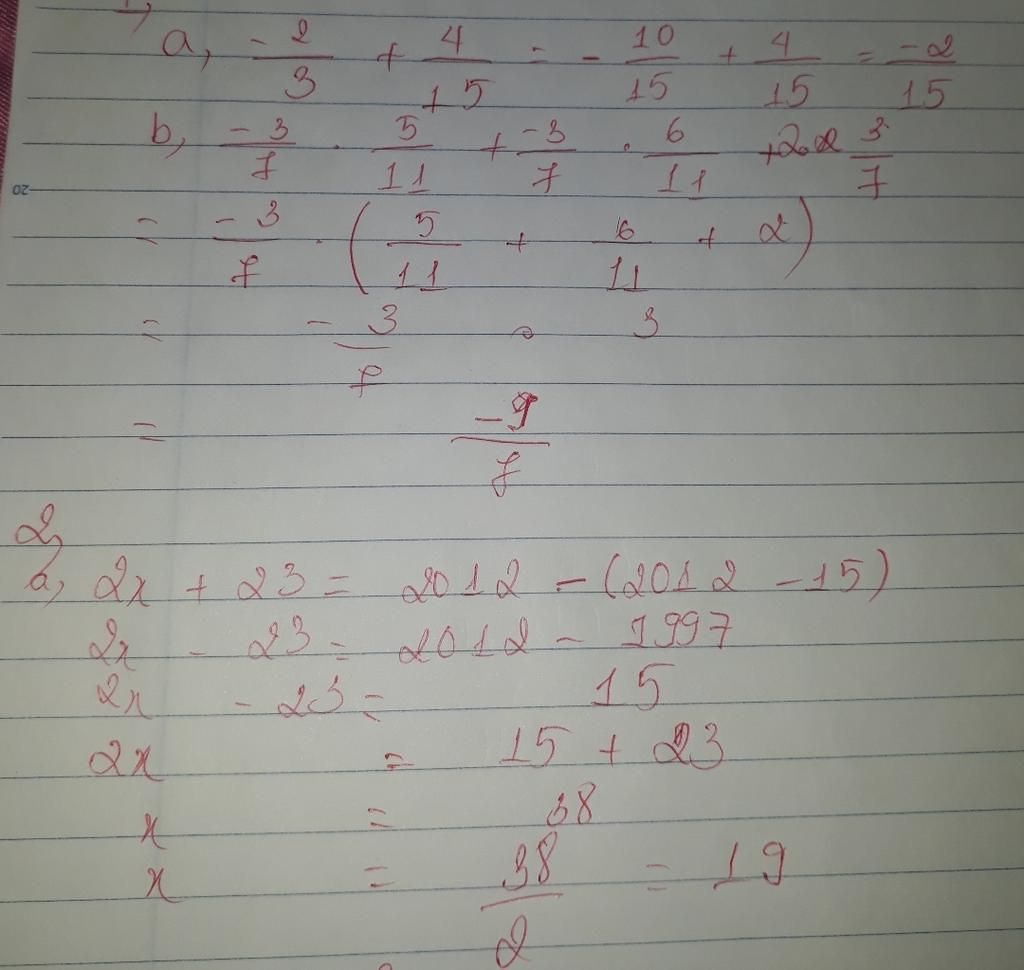 1,
a, -2/3 + 4/15 = - 10/15 + 4/15 = -2/15
b, -3/7 . 5/11 + -3/7 . 6/11 + 2 3/7
20
= -3/7 . ( 5/11 + 6/11 + 2 )
= -3/7 . 3
= -9/7
2,
a, 2x + 23 = 2012 - (2012 - 15)
2x - 23 = 2012 - 1997
2x - 23 = 15
2x = 15 + 23
x = 38
x = 38/2 = 19